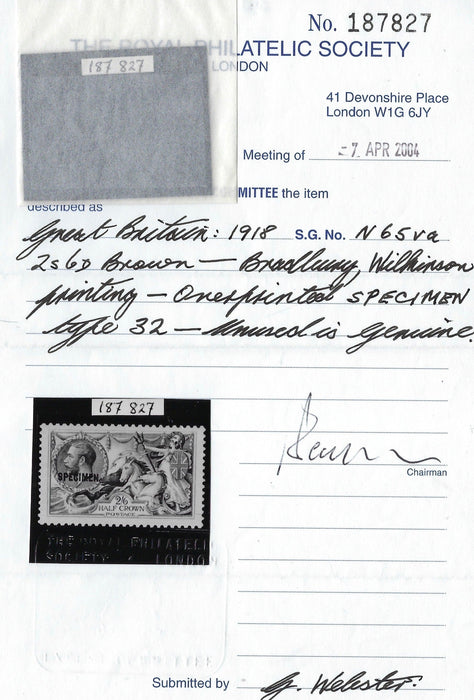 No. 187827
THE ROYAL PHILATELIC SOCIETY
LONDON
187 827
41 Devonshire Place
London W1G 6JY
Meeting of -7 APR 2004
MITTEE the item
described as
Great Britain: 1918 S.G. No. N65va
2s6D Brown — Bradbury, Wilkinson
printing — Overprinted SPECIMEN
type 32 — Unused is genuine.
187 827
SPECIMEN
2/6
HALF CROWN
POSTAGE
THE ROYAL PHILATELI
SOCIETY LONDO
Chairman
Submitted by G. Webster.